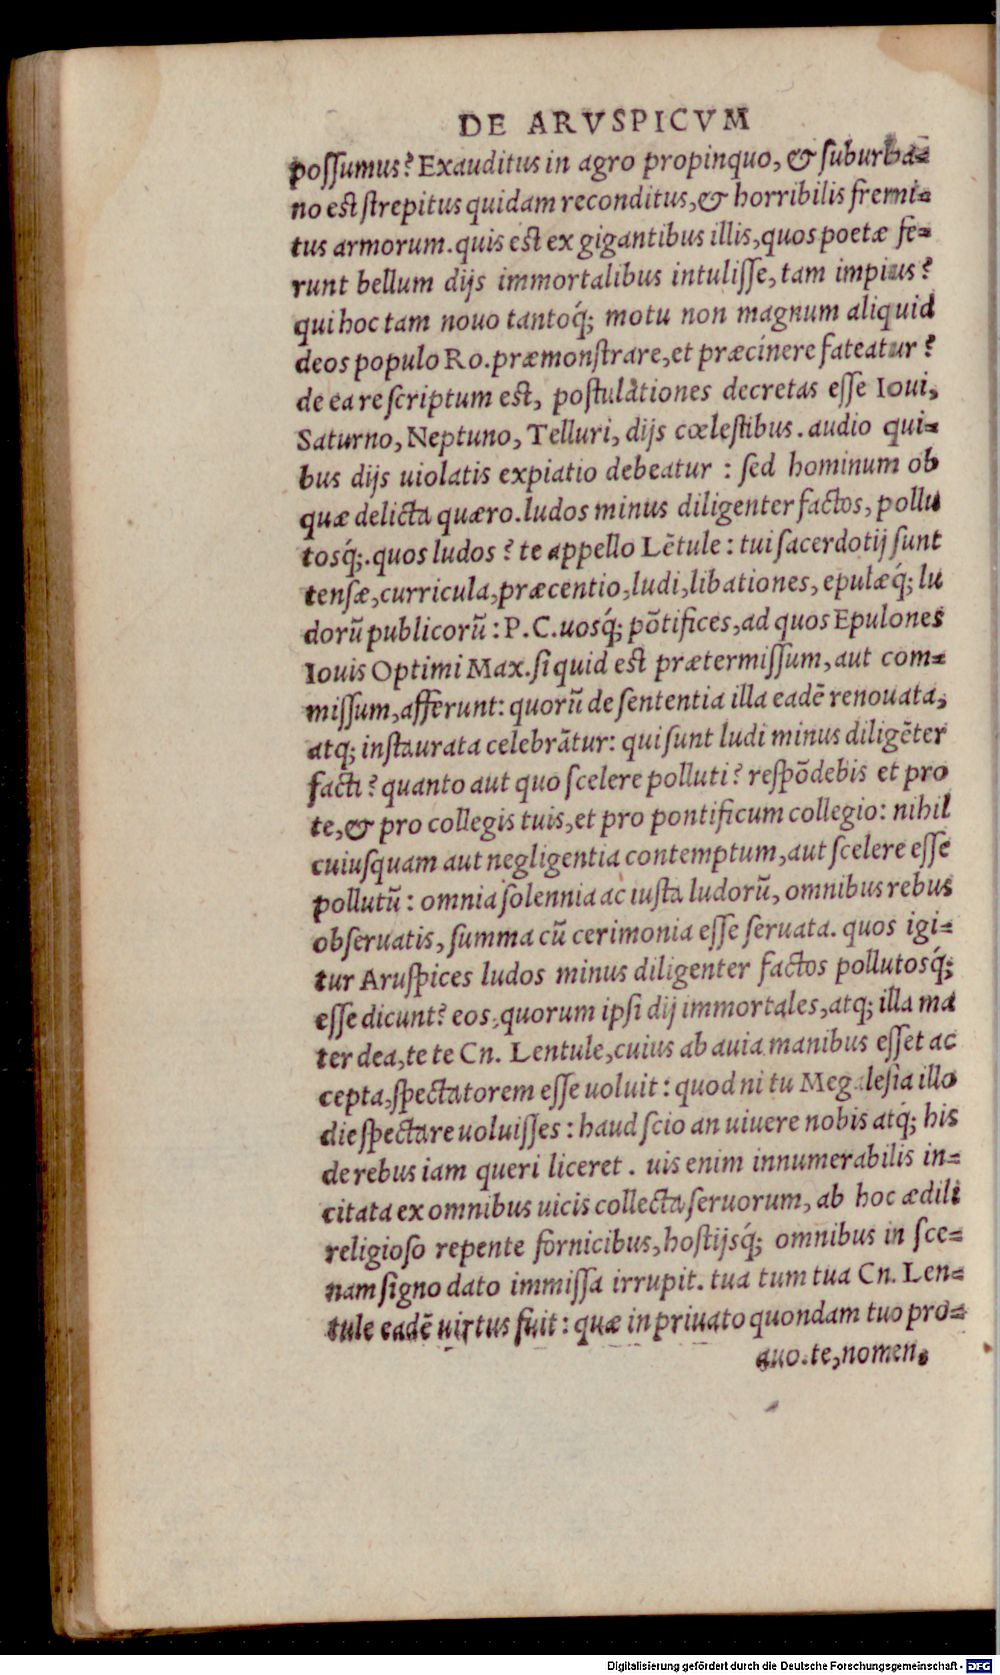 DE ARVSPICVM
possumus? Exauditus in agro propinquo, & suburba=
no est strepitus quidam reconditus, & horribilis fremi=
tus armorum. quis est ex gigantibus illis, quos poetæ fe=
runt bellum dijs immortalibus intulisse, tam impius?
qui hoc tam nouo tantoq́; motu non magnum aliquid
deos populo Ro. præmonstrare, et præcinere fateatur?
de ea re scriptum est, postulationes decretas esse Ioui,
Saturno, Neptuno, Telluri, dijs cœlestibus. audio qui=
bus dijs uiolatis expiatio debeatur : sed hominum ob
quæ delicta quæro. ludos minus diligenter factos, pollu
tosq́;. quos ludos? te appello Lētule: tui sacerdotij sunt
tensæ, curricula, præcentio, ludi, libationes, epulæq́; lu
dorū publicorū: P. C. uosq́; pōtifices, ad quos Epulones
Iouis Optimi Max. si quid est prætermissum, aut com=
missum, afferunt: quorū de sententia illa eadē renouata,
atq; instaurata celebrātur: qui sunt ludi minus diligēter
facti? quanto aut quo scelere polluti? respōdebis et pro
te, & pro collegis tuis, et pro pontificum collegio: nihil
cuiusquam aut negligentia contemptum, aut scelere esse
pollutū: omnia solennia ac iusta ludorū, omnibus rebus
obseruatis, summa cū cerimonia esse seruata. quos igi=
tur Aruspices ludos minus diligenter factos pollutosq́;
esse dicunt? eos, quorum ipsi dij immortales, atq; illa ma
ter dea, te te Cn. Lentule, cuius ab auia manibus esset ac
cepta, spectatorem esse uoluit: quod ni tu Megalesia illo
die spectare uoluisses: haud scio an uiuere nobis atq́; his
de rebus iam queri liceret. uis enim innumerabilis in=
citata ex omnibus uicis collecta seruorum, ab hoc ædili
religioso repente fornicibus, hostijsq́; omnibus in sce=
nam signo dato immissa irrupit. tua tum tua Cn. Len=
tule eadē uirtus fuit: quæ in priuato quondam tuo pro=
auo. te, nomen,
Digitalisierung gefördert durch die Deutsche Forschungsgemeinschaft - DFG